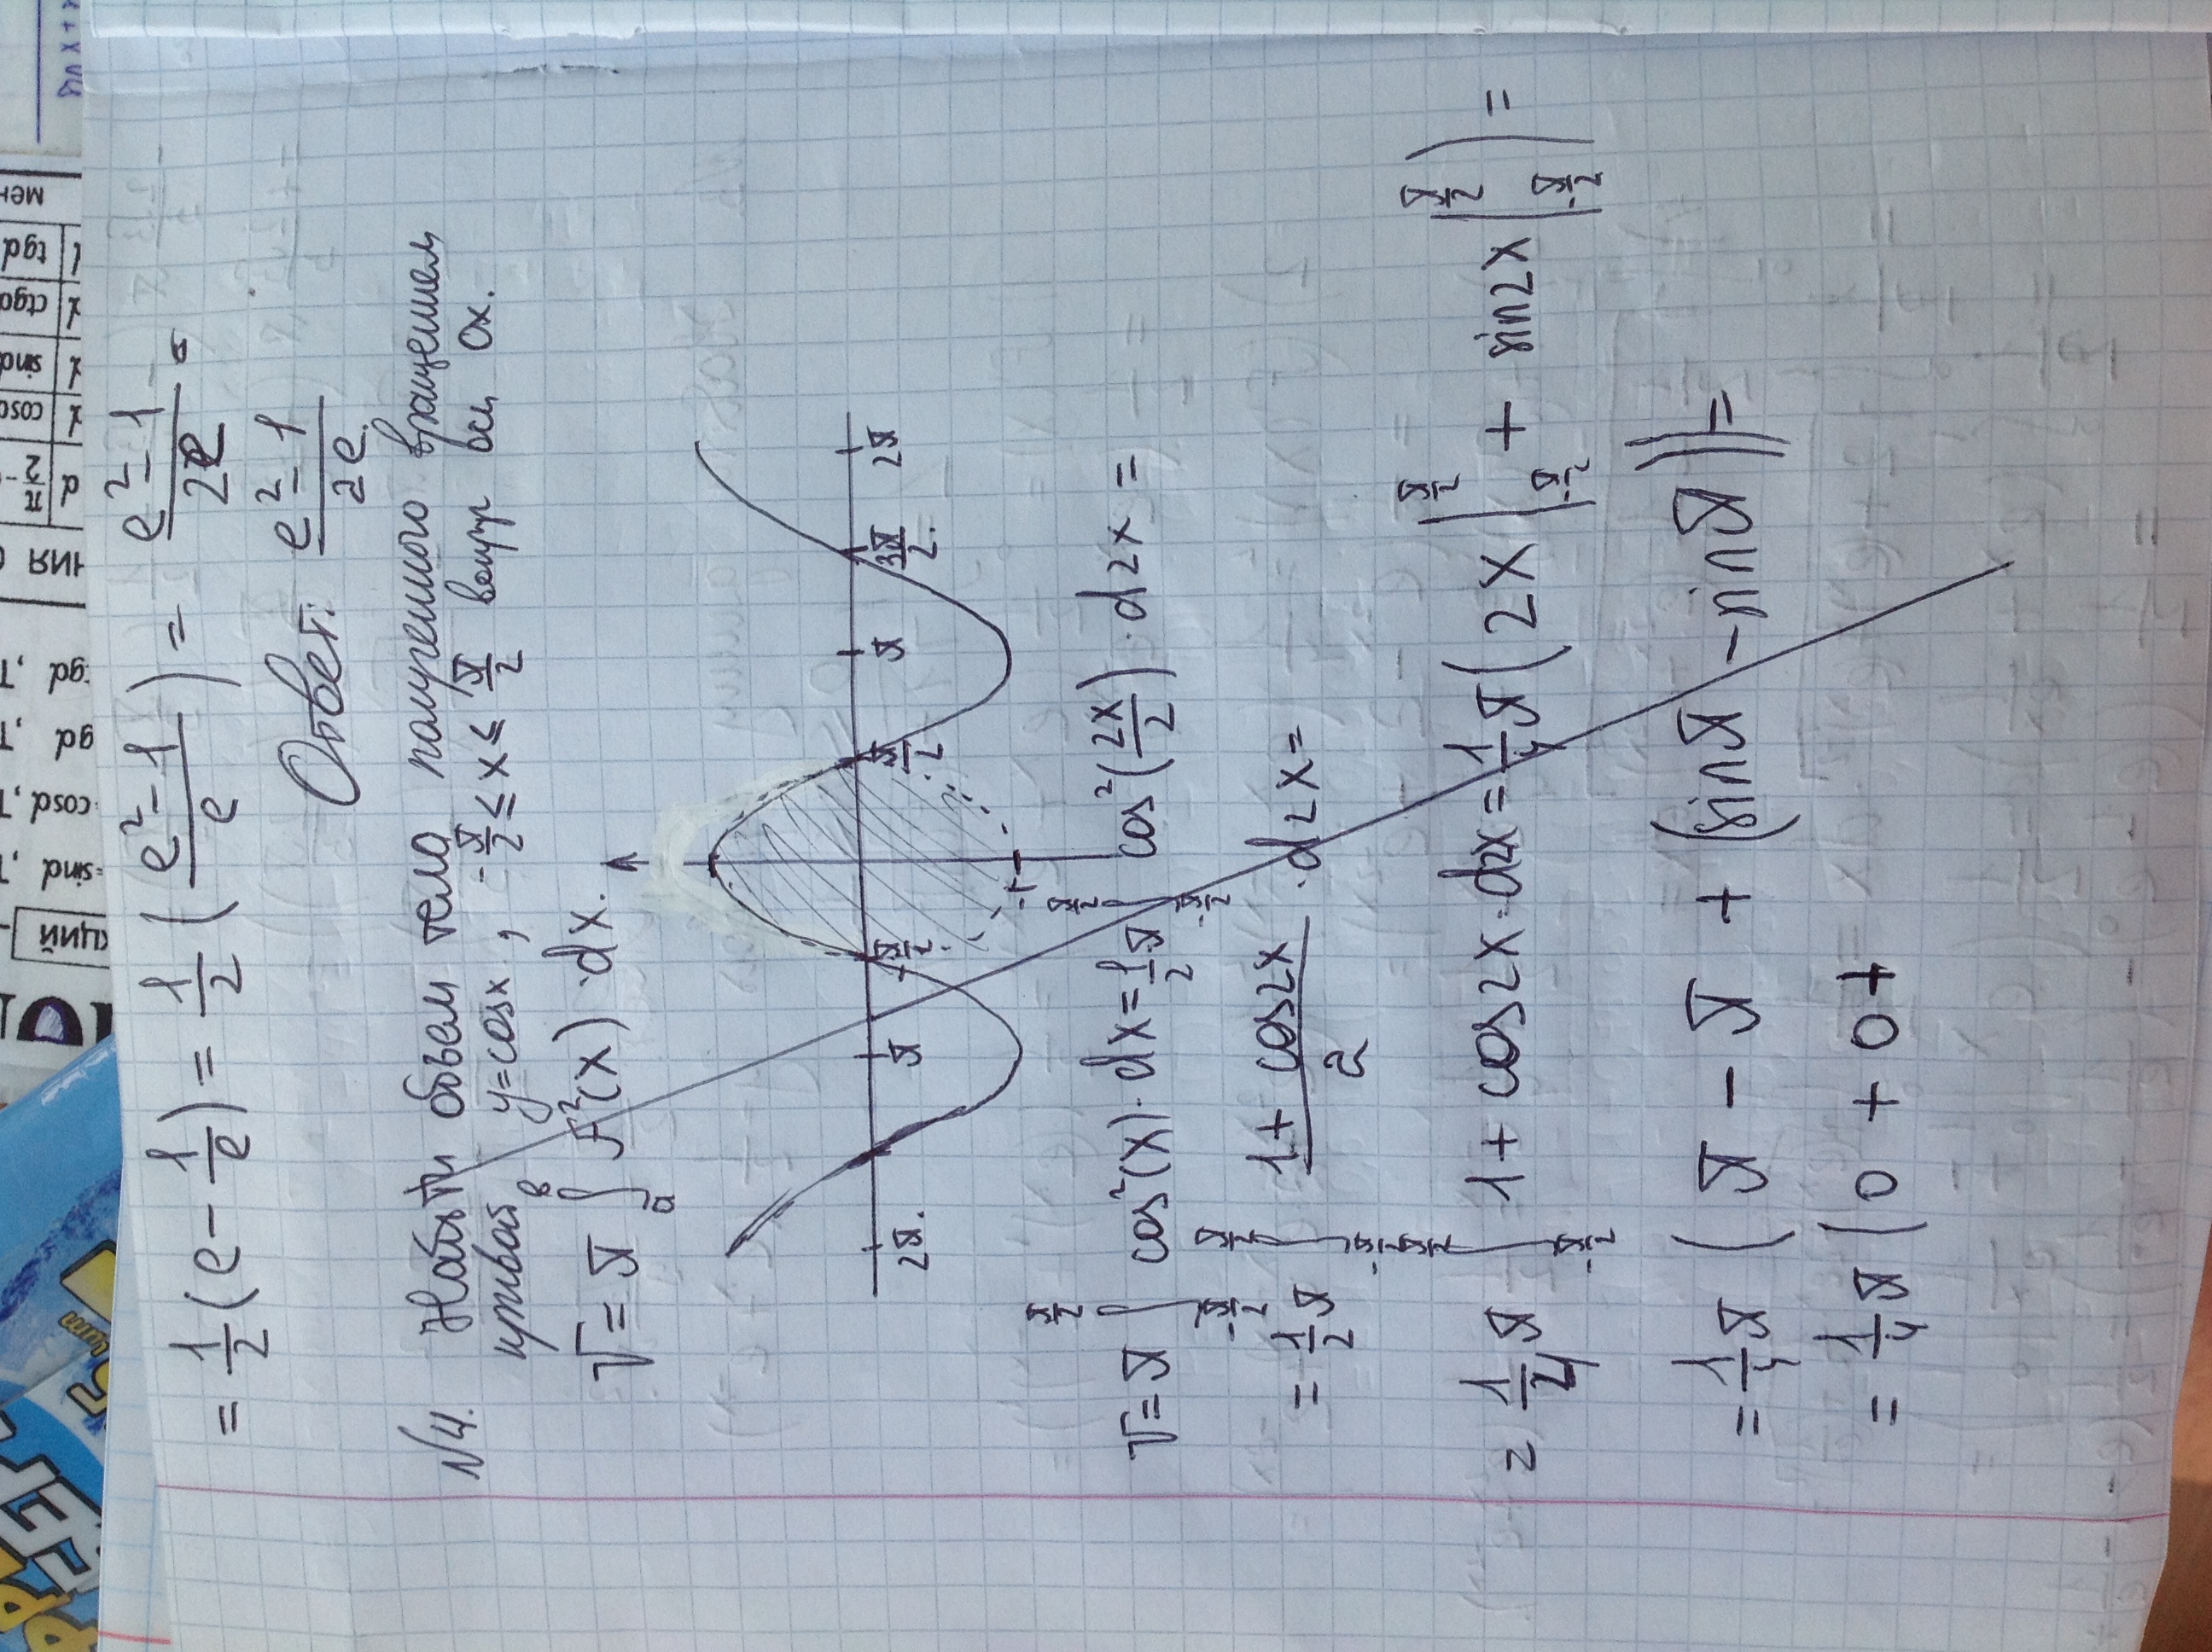 = 1/2 (e - 1/e) = 1/2 ( (e² - 1)/e ) = (e² - 1)/2e
Ответ: (e² - 1)/2e.
№4. Найти объем тела полученного вращением
кривой y = cosx, -π/2 ≤ x ≤ π/2 вокруг оси Ox.
V = π ∫_a^b f²(x) · dx.
2π. π -π/2 π/2 π 3π/2. 2π
-1
V = π ∫_{-π/2}^{π/2} cos²(x) · dx = 1/2 π ∫_{-π/2}^{π/2} cos²(2x/2) · d2x =
= 1/2 π ∫_{-π/2}^{π/2} (1 + cos2x)/2 · d2x =
= 1/4 π ∫_{-π/2}^{π/2} 1 + cos2x · d2x = 1/4 π (2x |_{-π/2}^{π/2} + sin2x |_{-π/2}^{π/2}) =
= 1/4 π (π - π + (sinπ - sinπ)) =
= 1/4 π (0 + 0 +
sin x +
мен
α π/2 -
cosα
sinα
ctgα
tgα
НИЯ
gα, T
gα, T
cosα, T
sinα, T
КЦИЙ